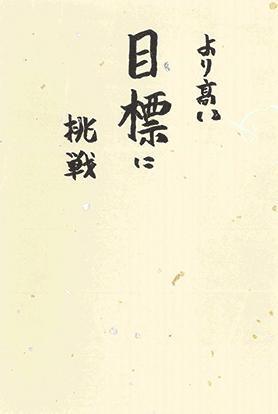 より高い
目標に
挑戦